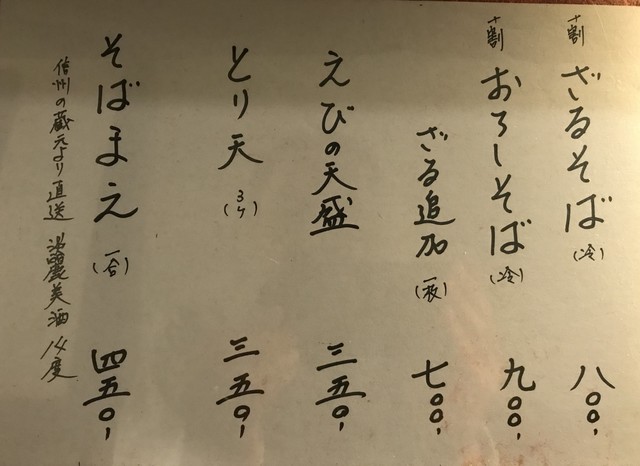 十割 ざるそば (冷) 八〇〇、
十割 おろしそば (冷) 九〇〇、
ざる追加 (一枚) 七〇〇、
えびの天盛 三五〇、
とり天 (3ケ) 三五〇、
そばまえ (一合) 四五〇、
信州の蔵元より直送 湯麗美酒 14度